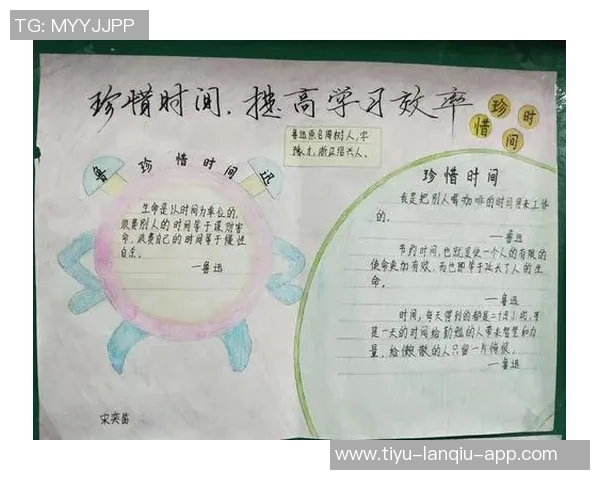 TG: MYYJJPP
珍惜时间,提高学习效率
珍时
惜间
鲁迅原名周树人,字
豫才,浙江绍兴人。
鲁迅珍惜时间
生命是以时间为单位的,
浪费别人的时间等于谋财害
命,浪费自己的时间等于慢性
自杀。
—鲁迅
珍惜时间
我是把别人喝咖啡的时间用来工作
的。
—鲁迅
节约时间,也就是使一个人的有限的
使命更加有效,而也即等于延长了人的生
命。
—鲁迅
时间,每天得到的都是二十四小时,可
是一天的时间给勤勉的人带来智慧和力
量,给懒散的人只留一片悔恨。
—鲁迅
宋奕茁
www.tiyu-lanqiu-app.com